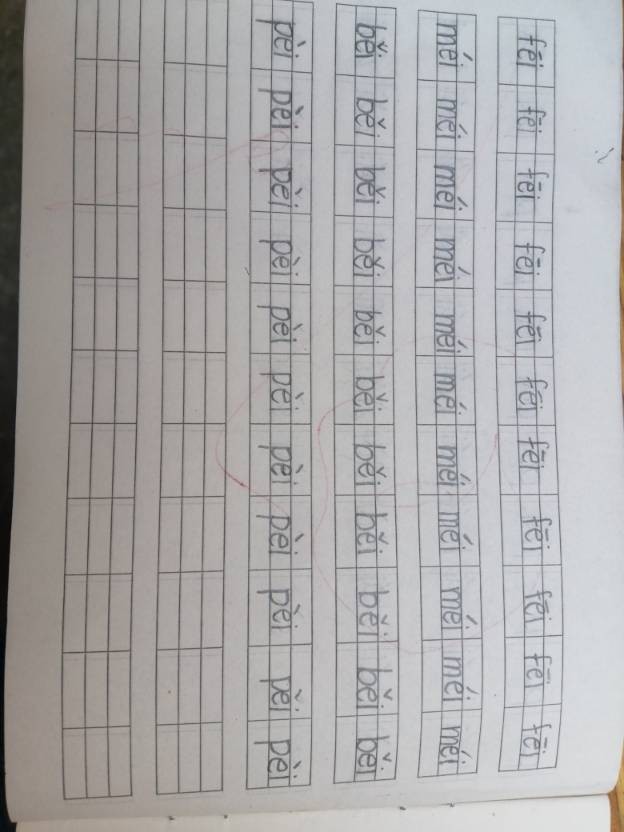 fēi fēi fēi fēi fēi fēi fēi fēi fēi fēi fēi
méi méi méi méi méi méi méi méi méi méi méi
běi běi běi běi běi běi běi běi běi běi běi
pèi pèi pèi pèi pèi pèi pèi pèi pèi pèi pèi